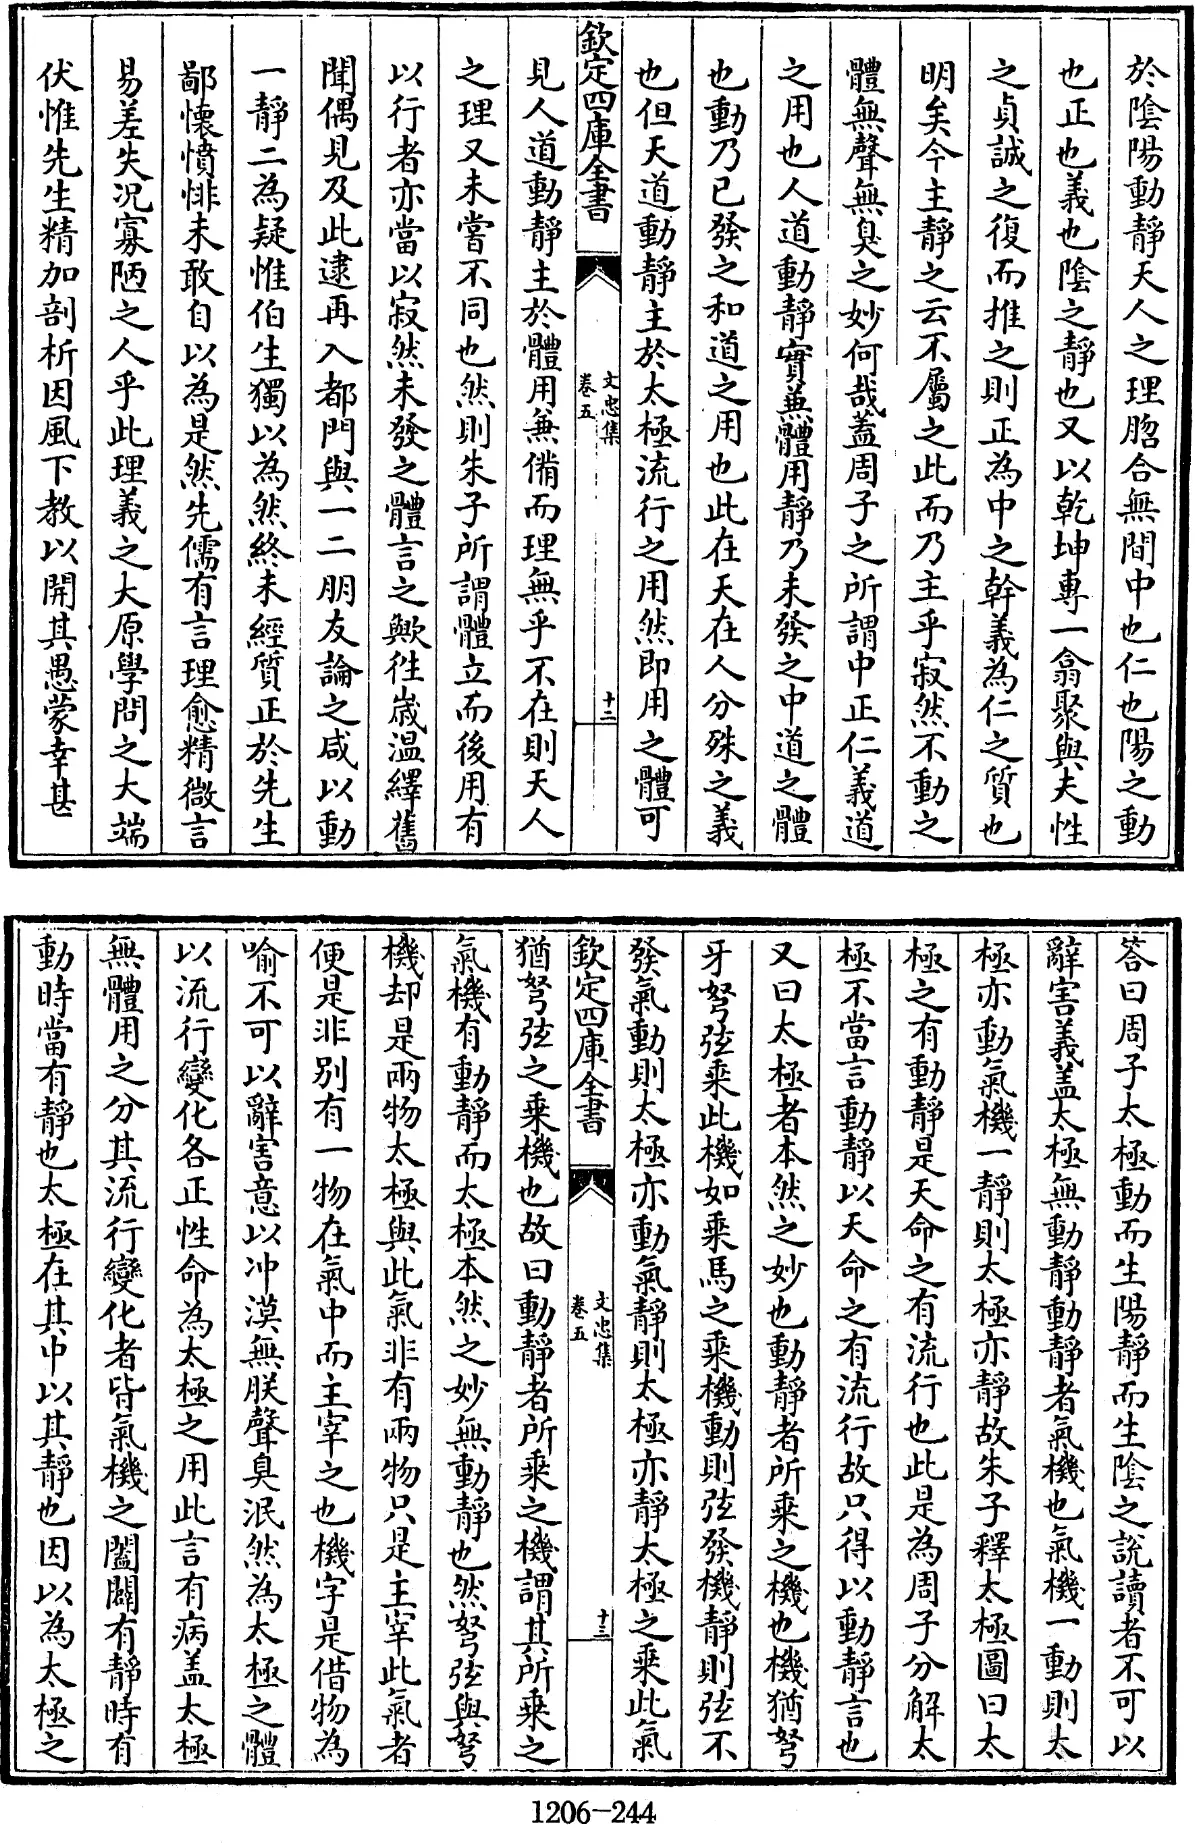 於陰陽動靜天人之理脗合無間中也仁也陽之動
也正也義也陰之靜也又以乾坤專一翕聚與夫性
之貞誠之復而推之則正為中之幹義為仁之質也
明矣今主靜之云不屬之此而乃主乎寂然不動之
體無聲無臭之妙何哉蓋周子之所謂中正仁義道
之用也人道動靜實兼體用靜乃未發之中道之體
也動乃已發之和道之用也此在天在人分殊之義
也但天道動靜主於太極流行之用然即用之體可
欽定四庫全書
文忠集
卷五
十二
見人道動靜主於體用兼備而理無乎不在則天人
之理又未嘗不同也然則朱子所謂體立而後用有
以行者亦當以寂然未發之體言之歟徃歳溫繹舊
聞偶見及此逮再入都門與一二朋友論之咸以動
一靜二為疑惟伯生獨以為然終未經質正於先生
鄙懷憤悱未敢自以為是然先儒有言理愈精微言
易差失况寡陋之人乎此理義之大原學問之大端
伏惟先生精加剖析因風下教以開其愚蒙幸甚
答曰周子太極動而生陽靜而生陰之說讀者不可以
辭害義蓋太極無動靜動靜者氣機也氣機一動則太
極亦動氣機一靜則太極亦靜故朱子釋太極圖曰太
極之有動靜是天命之有流行也此是為周子分解太
極不當言動靜以天命之有流行故只得以動靜言也
又曰太極者本然之妙也動靜者所乘之機也機猶弩
牙弩弦乘此機如乘馬之乘機動則弦發機靜則弦不
發氣動則太極亦動氣靜則太極亦靜太極之乘此氣
欽定四庫全書
文忠集
卷五
十三
猶弩弦之乘機也故曰動靜者所乘之機謂其所乘之
氣機有動靜而太極本然之妙無動靜也然弩弦與弩
機却是兩物太極與此氣非有兩物只是主宰此氣者
便是非別有一物在氣中而主宰之也機字是借物為
喻不可以辭害意以冲漠無朕聲臭泯然為太極之體
以流行變化各正性命為太極之用此言有病蓋太極
無體用之分其流行變化者皆氣機之闔闢有靜時有
動時當有靜也太極在其中以其靜也因以為太極之
1206-244